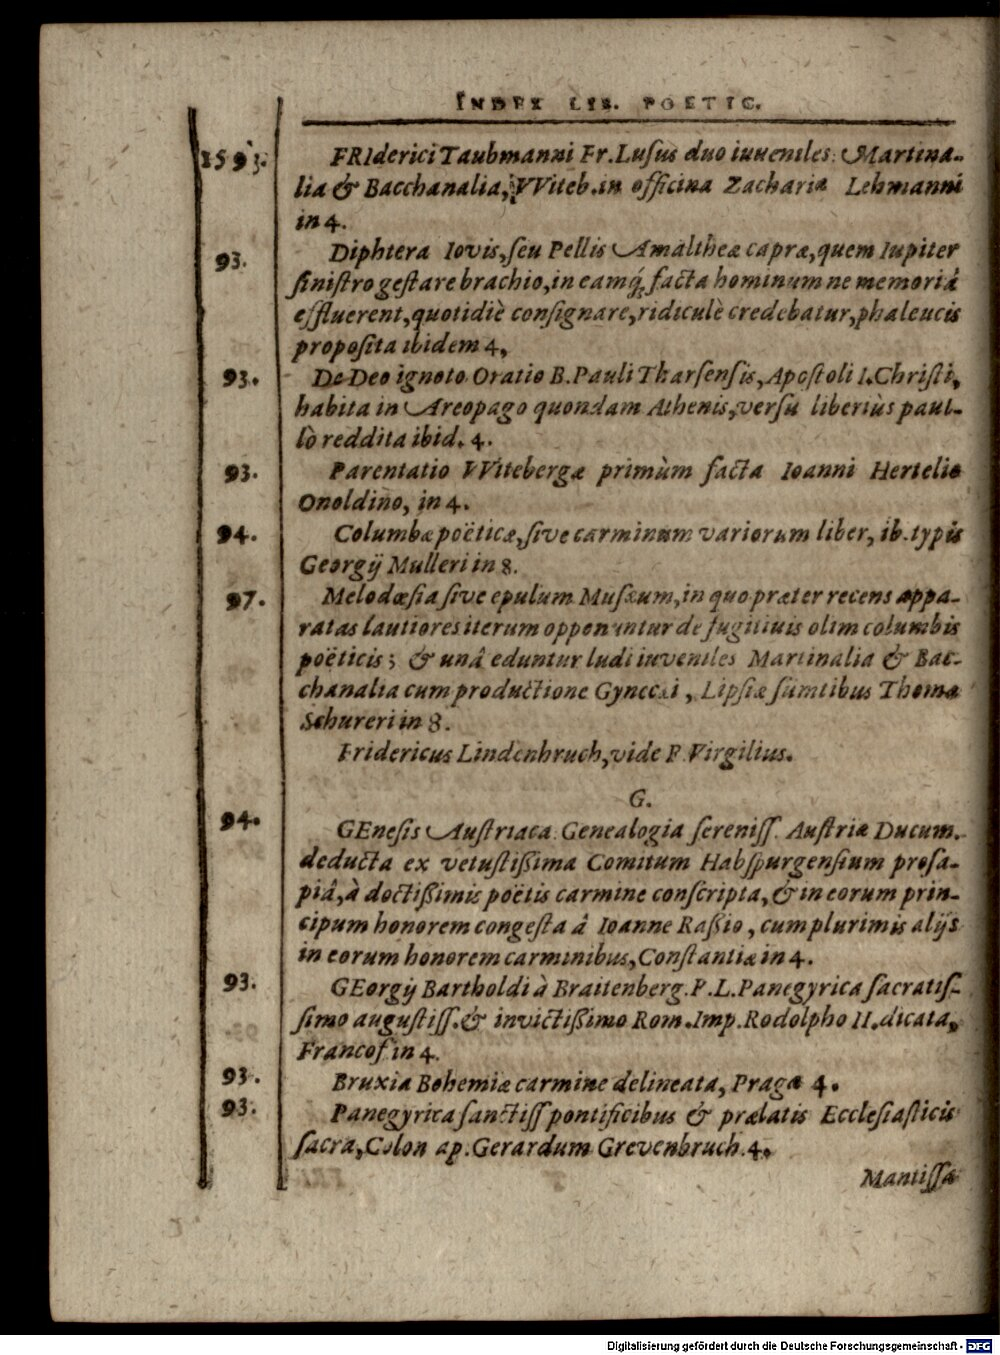 INDEX LIB. POETIC.
1593. FRIderici Taubmanni Fr. Lusus duo iuveniles: Martina-
lia & Bacchanalia, VViteb. in officina Zachariæ Lehmanni
in 4.
93. Diphtera Iovis, seu Pellis Amaltheæ capræ, quem Iupiter
sinistro gestare brachio, in eamq́; facta hominum ne memoriâ
effluerent, quotidiè consignare, ridiculè credebatur, phaleucis
proposita ibidem 4.
93. De Deo ignoto Oratio B. Pauli Tharsensis, Apostoli I. Christi,
habita in Areopago quondam Athenis, versu liberiùs paul-
lò reddita ibid. 4.
93. Parentatio VVitebergæ primùm facta Ioanni Hertelio
Onoldino, in 4.
94. Columbæ poëticæ, sive carminum variorum liber, ib. typis
Georgij Mulleri in 8.
97. Melodæsia sive epulum Musæum, in quo præter recens appa-
ratas lautiores iterum opponuntur de fugitiuis olim columbis
poëticis; & unâ eduntur ludi iuveniles Martinalia & Bac-
chanalia cum productione Gynecæi, Lipsiæ sumtibus Thomæ
Schureri in 8.
Fridericus Lindenbruch, vide P. Virgilius.
G.
94. GEnesis Austriaca. Genealogia sereniss. Austriæ Ducum.
deducta ex vetustißima Comitum Habspurgensium prosa-
piâ, à doctißimis poëtis carmine conscripta, & in eorum prin-
cipum honorem congesta â Ioanne Raßio, cum plurimis alijs
in eorum honorem carminibus, Constantiæ in 4.
93. GEorgij Bartholdi à Braitenberg. P. L. Panegyrica sacratis-
simo augustiss. & invictißimo Rom. Imp. Rodolpho II. dicata,
Francof. in 4.
93. Bruxia Bohemiæ carmine delineata, Pragæ 4.
93. Panegyrica sanctiss pontificibus & prælatis Ecclesiasticis
sacra, Colon ap. Gerardum Grevenbruch. 4.
Mantissa
Digitalisierung gefördert durch die Deutsche Forschungsgemeinschaft - DFG